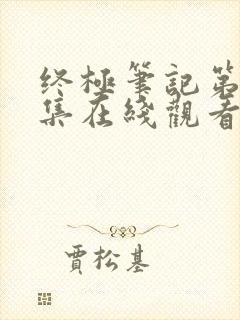 终極筆記第
集在綫觀看
賈松基